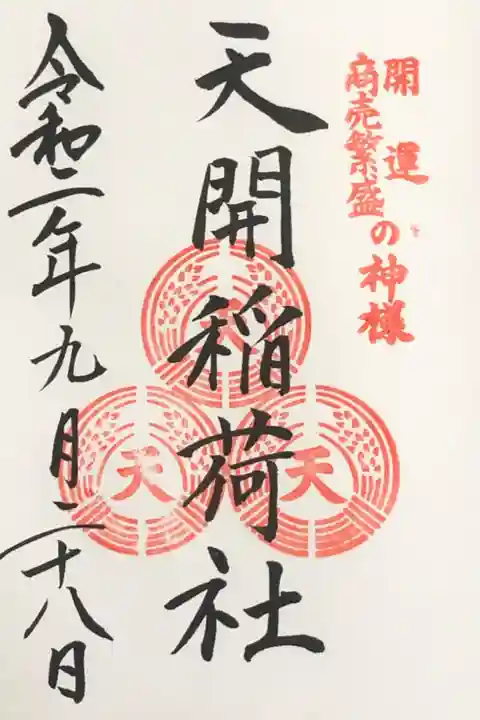 開運
商売繁盛
の神様
天開稲荷社
天
天
令和二年九月二十八日